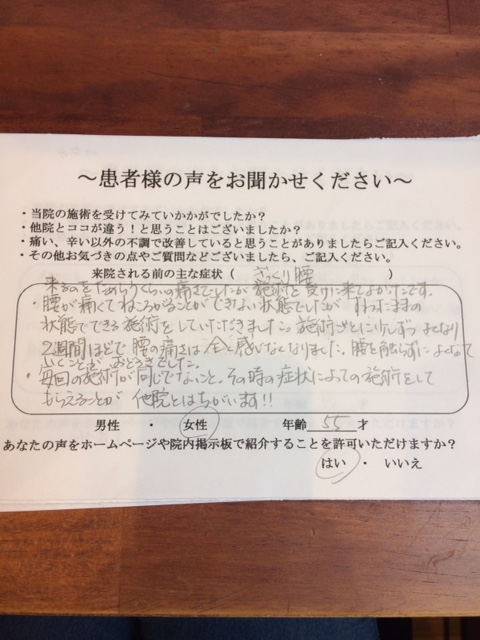 ～患者様の声をお聞かせください～
・当院の施術を受けてみていかかがでしたか？
・他院とココが違う！と思うことはございましたか？
・痛い、辛い以外の不調で改善していると思うことがありましたらご記入ください。
・その他お気づきの点やご質問などございましたら、ご記入ください。
来院される前の主な症状（ ぎっくり腰 ）
来るのをためらうくらいの痛さでしたが 施術を受けに来てよかったです。
・腰が痛くてねころがることができない状態でしたが すわったままの
状態でできる施術をしていただきました。施術ごとに少しずつよくなり
2週間ほどで腰の痛さは全く感じなくなりました。腰を触らずによくなって
いくことが おどろきでした。
・毎回の施術が同じでないこと。その時の症状によっての施術をして
もらえることが 他院とはちがいます!!
男性 ・ 女性 年齢 55 才
あなたの声をホームページや院内掲示板で紹介することを許可いただけますか？
はい ・ いいえ